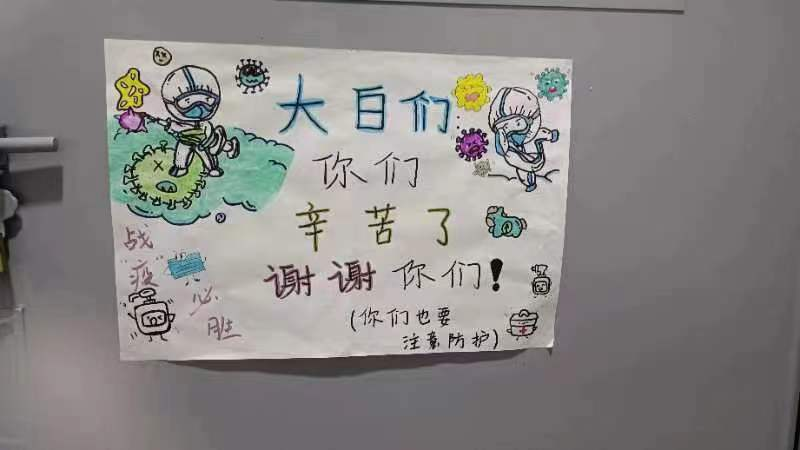 大白们
你们
辛苦了
谢谢你们！
（你们也要
注意防护）
战
疫
必
胜